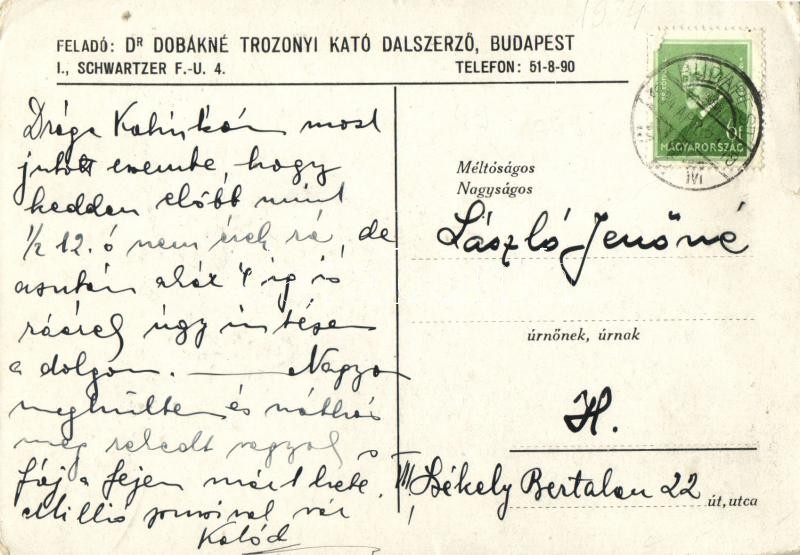 1934
FELADÓ: Dʀ DOBÁKNÉ TROZONYI KATÓ DALSZERZŐ, BUDAPEST
I., SCHWARTZER F.-U. 4. TELEFON: 51-8-90
Drága most
jutott eszembe, hogy
kedden előbb mint
½ 12. ó nem érek rá, de
azután akár 4 ig is
ráérek úgy intézem
a dolgom. — Nagyon
meghűltem és náthás
meg rekedt vagyok s
fáj a fejem már 1 hete.
Millió puszival vár
Katód
BUDAPEST
6f
MAGYARORSZÁG
Méltóságos
Nagyságos
László Jenőné
úrnőnek, úrnak
H.
III Székely Bertalan 22 út, utca